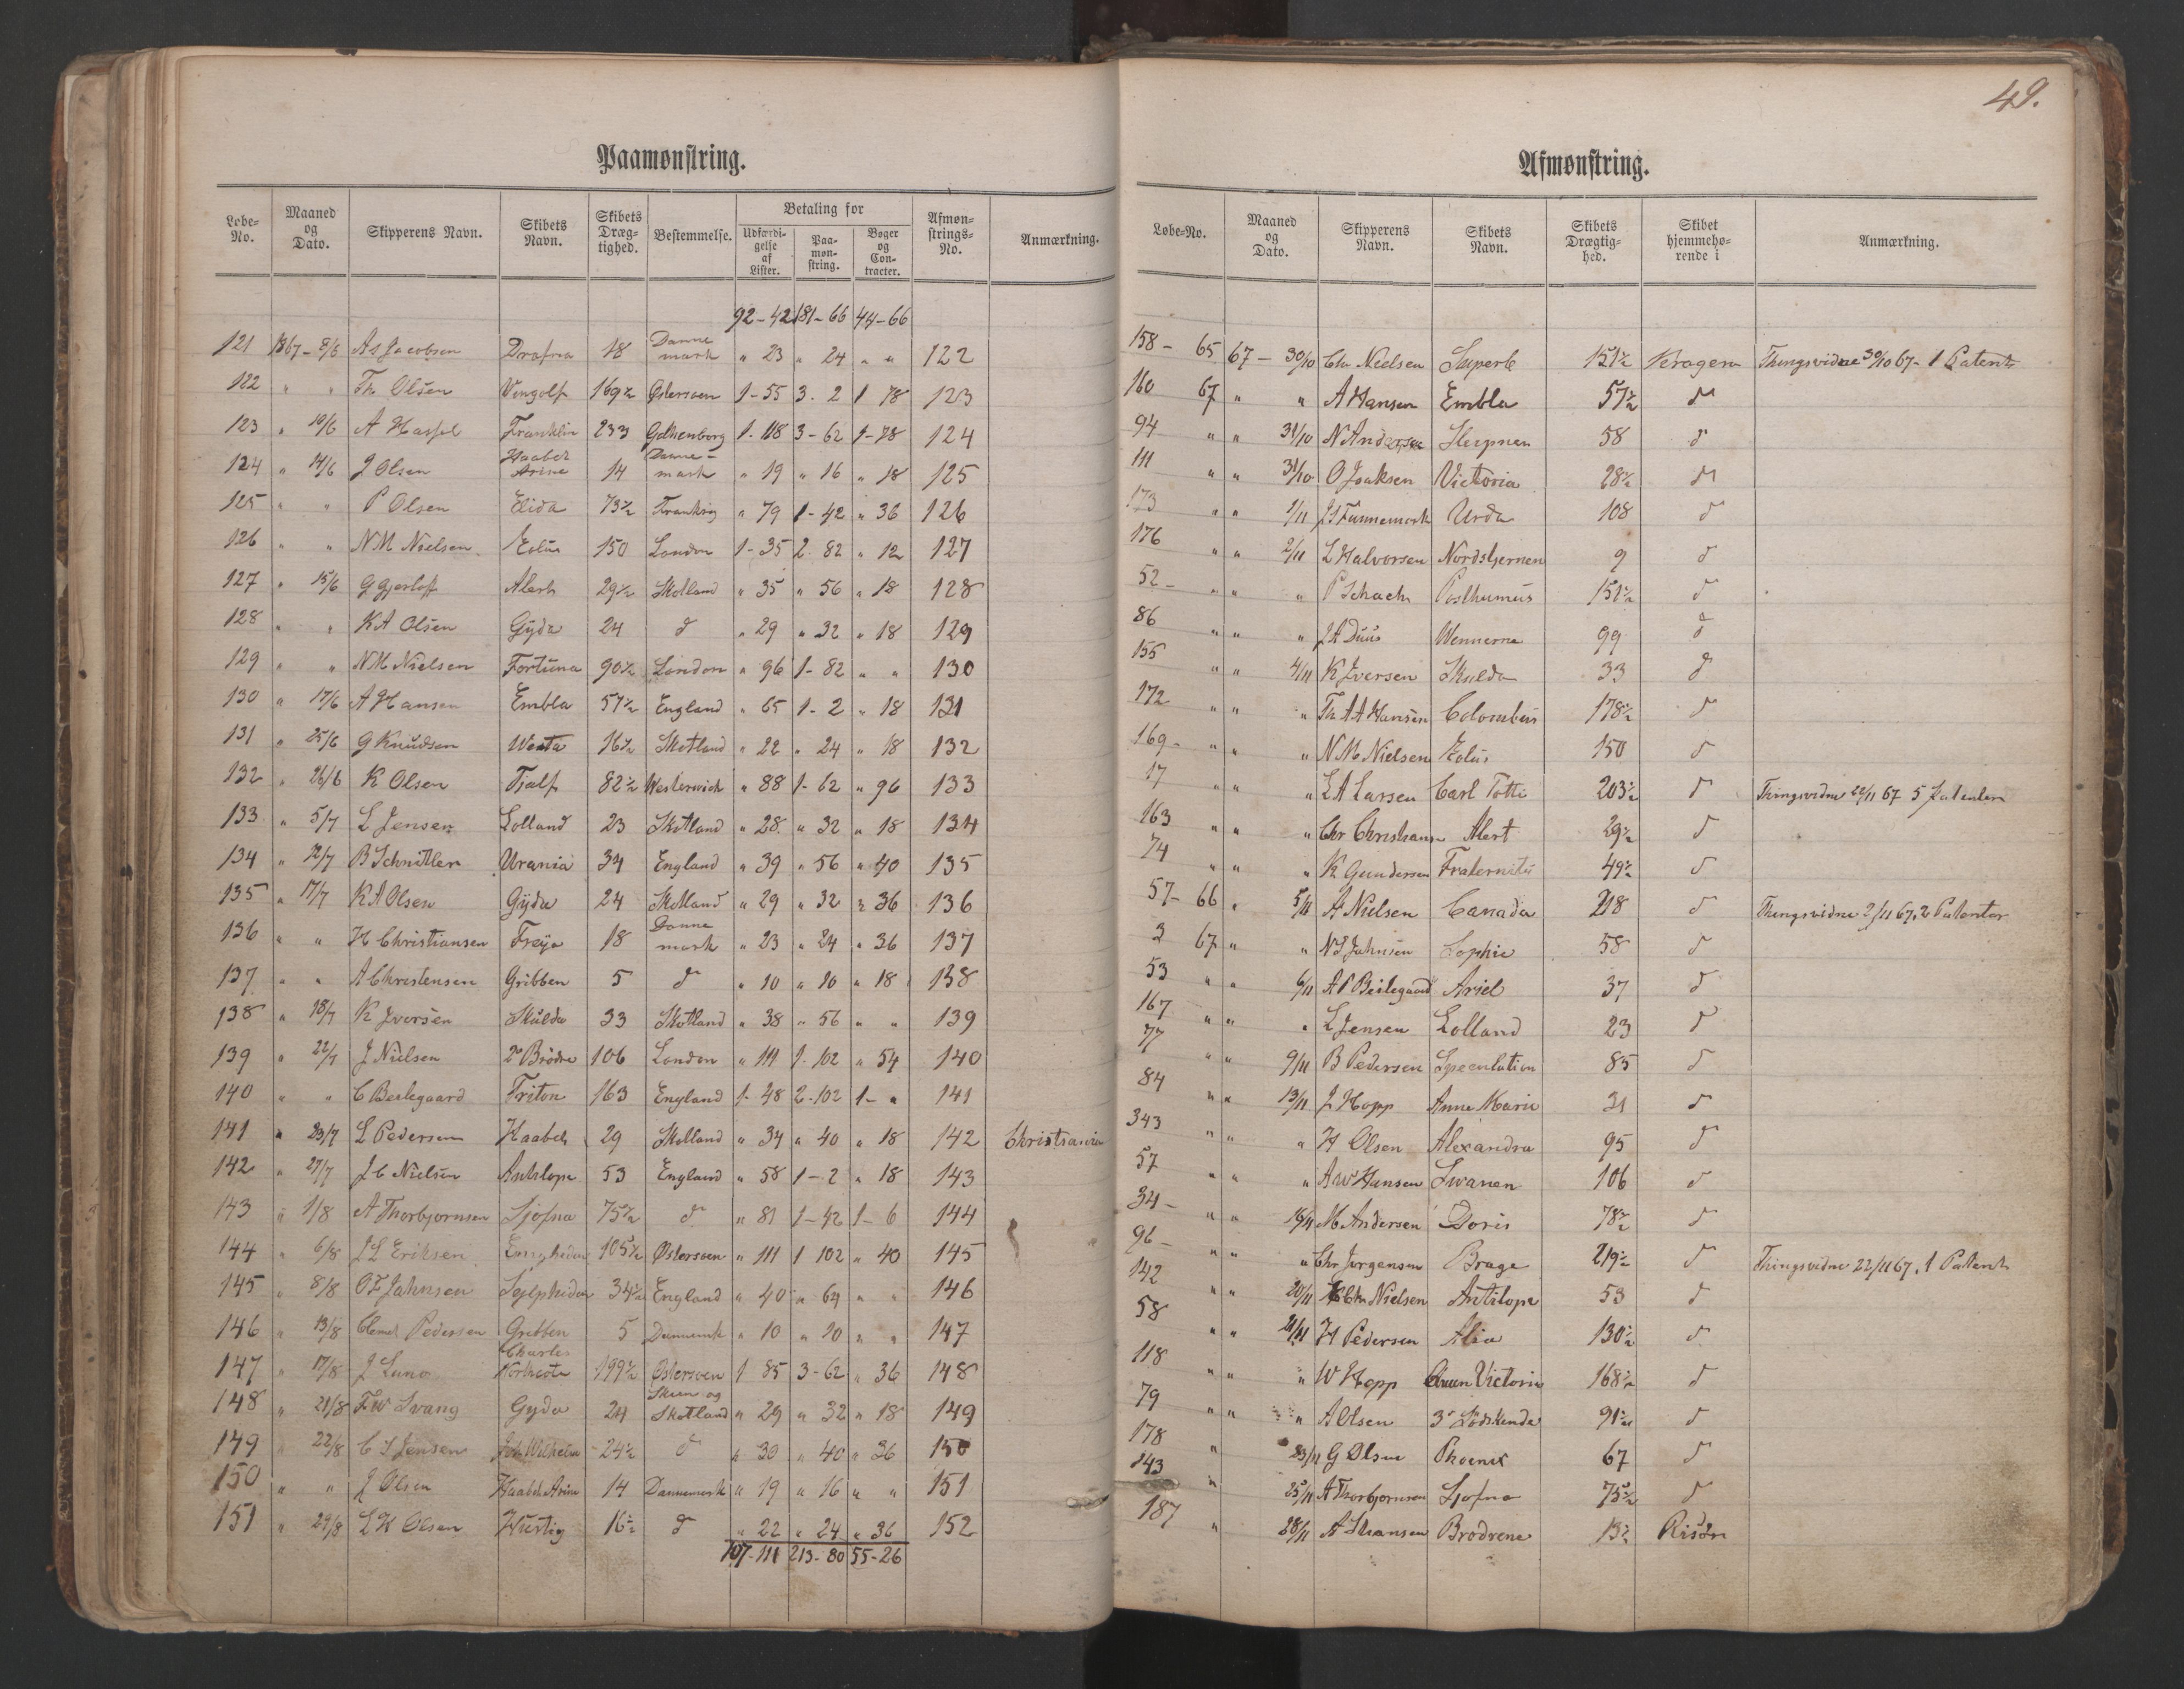 49.
Paamønstring.
Løbe-No. Maaned og Dato. Skipperens Navn. Skibets Navn. Skibets Dræg-tighed. Bestemmelse. Betaling for Udfærdi-gelse af Lister. Paa-møn-string. Bøger og Con-tracter. Afmøn-strings-No. Anmærkning.
92-42 181-66 44-66
121 1867- 8/6 As Jacobsen Drafna 18 Danne mark " 23 " 24 " " 122
122 " " Th Olsen Vingolf 169½ Østersøen 1-55 3. 2 1 78 123
123 " 10/6 A Hassel Franklin 233 Gothenborg 1-118 3-62 1-78 124
124 " 14/6 J Olsen Haabet Arine 14 Danne-mark " 19 " 16 " 18 125
125 " " P Olsen Elida 73½ Frankrig " 79 1-42 " 36 126
126 " " NM Nielsen Eolus 150 London 1-35 2. 82 " 12 127
127 " 15/6 G Gjerløff Alert 29½ Skotland " 35 " 56 " 18 128
128 " " KA Olsen Gyda 24 d " 29 " 32 " 18 129
129 " " NM Nielsen Fortuna 90½ London " 96 1-82 " " 130
130 " 17/6 A Hansen Embla 57½ England " 65 1-2 " 18 131
131 " 25/6 G Knudsen Westa 16½ Skotland " 22 " 24 " 18 132
132 " 26/6 K Olsen Tjalf 82½ Westerwich " 88 1-62 " 96 133
133 " 5/7 L Jensen Lolland 23 Skotland " 28 " 32 " 18 134
134 " 12/7 B Schnitler Urania 34 England " 39 " 56 " 40 135
135 " 17/7 KA Olsen Gyda 24 Skotland " 29 " 32 " 36 136
136 " " H Christiansen Freya 18 Danne mark " 23 " 24 " 36 137
137 " " A Christensen Gribben 5 d " 10 " 10 " 18 138
138 " 18/7 K Iversen Skulda 33 Skotland " 38 " 56 " " 139
139 " 22/7 J Nielsen 2 Brødre 106 London " 111 1-102 " 54 140
140 " " C Beilegaard Triton 163 England 1-48 2-102 1- " 141
141 " 23/7 L Pedersen Haabet 29 Skotland " 34 " 40 " 18 142 Christiania
142 " 27/7 J C Nielsen Antilope 53 England " 58 1-2 " 18 143
143 " 1/8 A Thorbjørnsen Sjofna 75½ d " 81 1-42 1-6 144
144 " 6/8 J L Eriksen 105½ Østersøen " 111 1 102 " 40 145
145 " 8/8 O Z Jahnsen Sylphiden 34½ England " 40 " 64 " " 146
146 " 13/8 Clemet Pedersen Gribben 5 Danmark " 10 " 10 " " 147
147 " 17/8 J Lund Charles Northcote 199½ Østersøen 1 85 3-62 " 36 148
148 " 21/8 F W Svang Gyda 24 Skien og Skotland " 29 " 32 " 18 149
149 " 22/8 C S Jensen Joh Wilhelm 24½ d " 30 " 40 " 36 150
150 " " J Olsen Haabet Arine 14 Dannemark " 19 " 16 " " 151
151 " 29/8 L K Olsen Hurtig 16½ d " 22 " 24 " 36 152
107-111 213-80 55-26
Afmønstring.
Løbe-No. Maaned og Dato. Skipperens Navn. Skibets Navn. Skibets Drægtig-hed. Skibet hjemmehø-rende i Anmærkning.
158- 65 67- 30/10 Chr Nielsen Superb 151½ Kragerø Thingsvidne 30/10 67- 1 Patent
160 67 " " A Hansen Embla 57½ d
94 " " 31/10 N Andersen Sleipner 58 d
111 " " 31/10 O Isaksen Victoria 28½ d
173 " " 1/11 J S Funnemark Urda 108 d
176 " " 2/11 L Halvorsen Nordstjernen 9 d
52- " " " P Schacht Posthumus 151½ d
86 " " " J A Duus Wennerne 99 d
155 " " 4/11 K Iversen Skulda 33 d
172 " " " Th A A Hansen Colombus 178½ d
169- " " " N M Nielsen Eolus 150 d
17 " " " L A Larsen Carl Totti 203½ d Thingsvidne 22/11 67 5 Patenter
163 " " " Chr Christians- Alert 29½ d
74 " " " K Gundersen Fraternitas 49½ d
57- 66 " 5/11 A Nielsen Canada 218 d Thingsvidne 2/11 67. 2 Patenter
3 67 " " N S Jahnsen Sophie 58 d
53 " " 6/11 A P Beilegaard Ariel 37 d
167 " " " L Jensen Lolland 23 d
77 " " 9/11 B Pedersen Speculation 85 d
84 " " 13/11 J Hopp Anna Marie 31 d
343 " " " H Olsen Alexandra 95 d
57 " " " A W Hansen Svanen 106 d
34- " " 16/11 M Andersen Doris 78½ d
96- " " " Chr Jørgensen Brage 219½ d Thingsvidne 22/11 67. 1 Patent
142 " " 20/11 Chr Nielsen Antilope 53 d
58 " " 21/11 H Pedersen Alia 130½ d
118 " " " W Hopp Queen Victoria 168½ d
79 " " " A Olsen 3 Södskende 91½ d
178 " 23/11 G Olsen Phoenix 67 d
143 " 25/11 A Thorbjørnsen Sjofna 75½ d
187 " 28/11 A Hansen Brødrene 13½ Risør